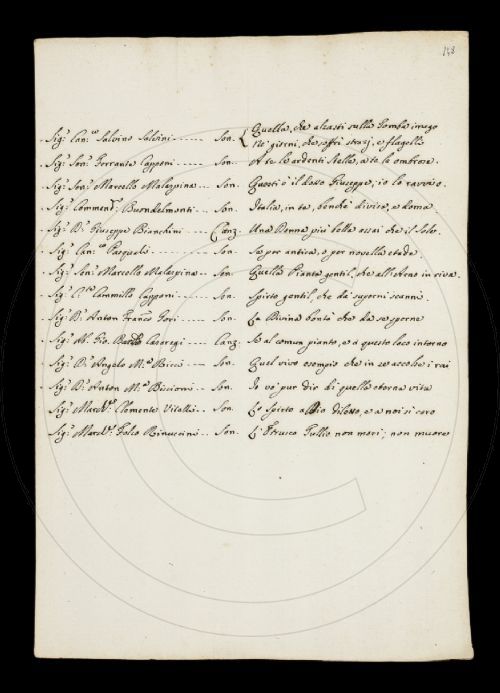 158
Quella, che alzasti sulla Tomba imago
Sig.r Can.co Salvino Salvini Son. Ne' giorni, che soffri strazj, e flagelli
Sig.r Sen.r Ferrante Capponi Son. A te le ardenti Stelle, a te le ombrose.
Sig.r Sen.r Marcello Malaspina Son. Questi è il dotto Giuseppe; io lo ravviso.
Sig.r Commend.r Buondelmonti Son. Italia, in te, benchè divisa, e doma.
Sig.r D.r Giuseppe Bianchini Canz. Una Donna più bella assai che il Sole.
Sig.r Can.co Pasquali Son. Se per antica, o per novella etade.
Sig.r Sen.r Marcello Malaspina Son. Quella Pianta gentil, che all'Arno in riva.
Sig.r Cammillo Capponi Son. Spirto gentil, che da' superni scanni.
Sig.r D.r Anton Franco Gori Son. La Divina bontà che da se sperne
Sig.r Ab. Gio. Bart. Casaregi Canz. Se al comun pianto, e a questo loco intorno
Sig.r D.r Angelo M.a Ricci Son. Quel vivo esempio che in se accolse i rai
Sig.r D.r Anton M.a Biscioni Son. In vo' pur dir di quella eterna vita
Sig.r March.e Clemente Vitelli Son. Lo Spirto a Dio diletto, e a noi sì caro
Sig.r March.e Folco Rinuccini Son. L'Etrusco Tullio non morì; non muore